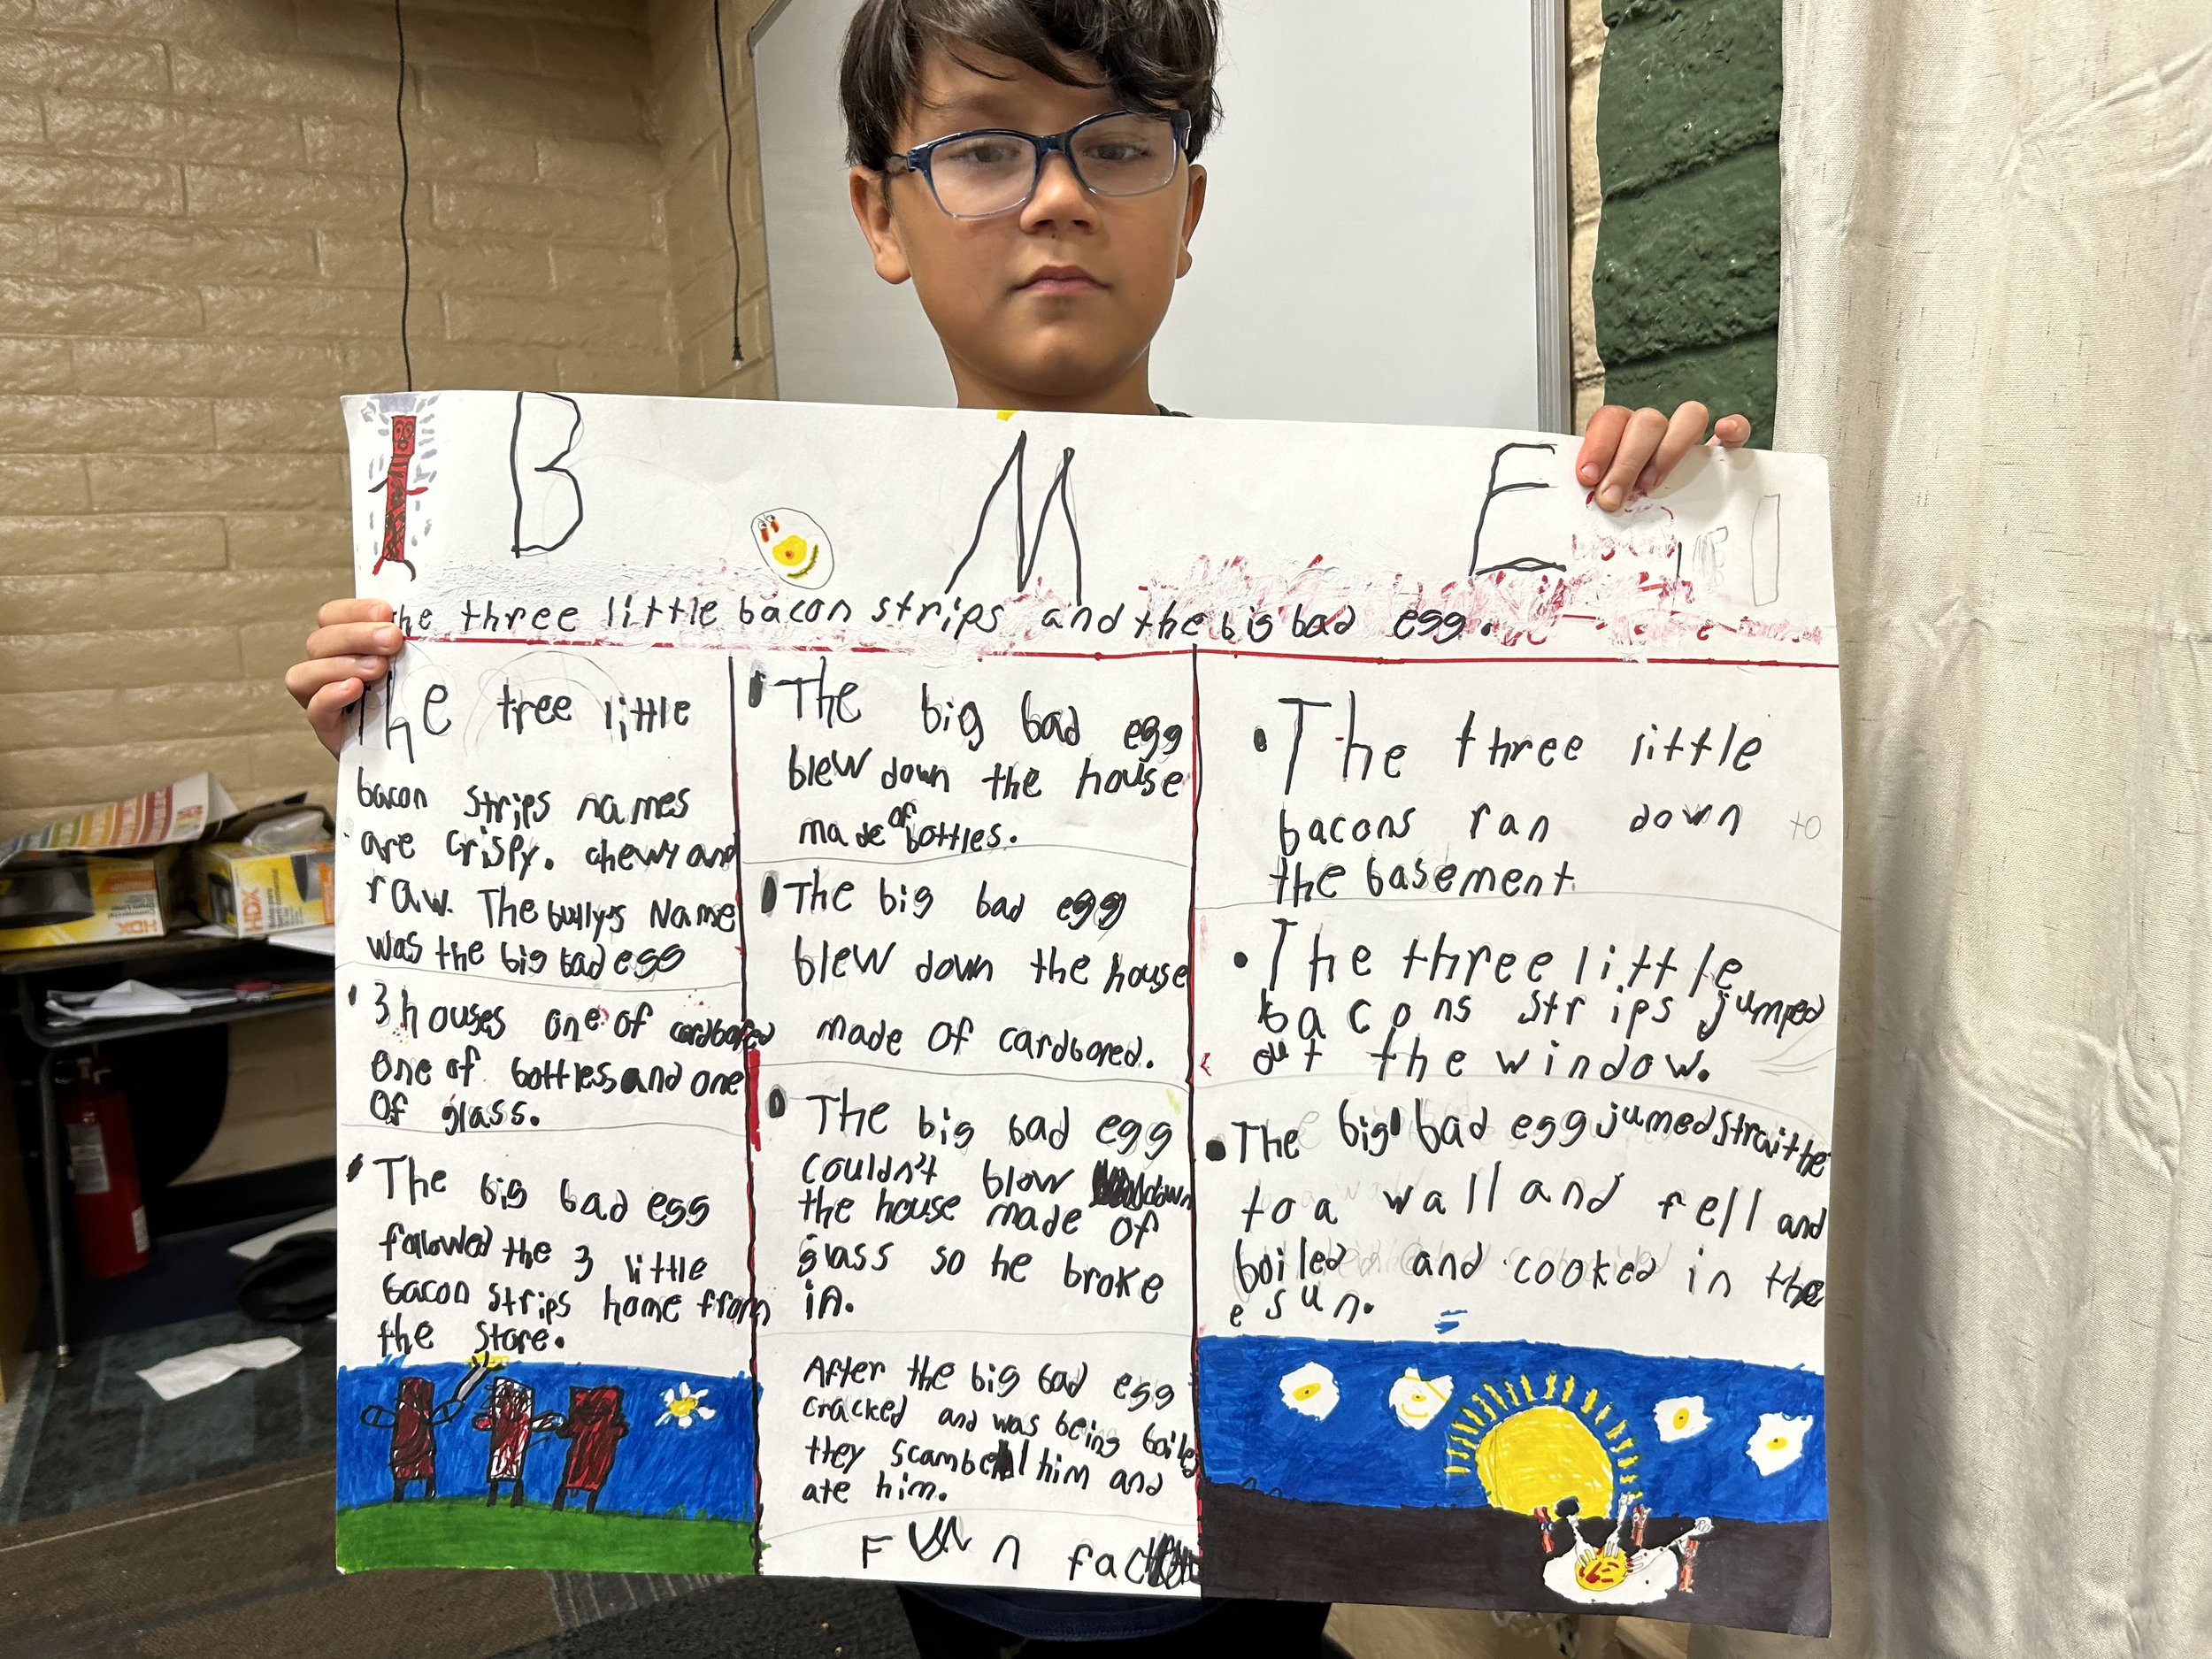 B M E
The three little bacon strips and the big bad egg.
The tree little
bacon strips names
are crispy. chewy and
raw. The bullys Name
was the big bad egg
3 houses one of cardbored
one of bottles and one
of glass.
The big bad egg
followed the 3 little
bacon strips home from
the store.
The big bad egg
blew down the house
made of bottles.
The big bad egg
blew down the house
made of cardbored.
The big bad egg
couldn't blow down
the house made of
glass so he broke
in.
After the big bad egg
cracked and was being boiled
they scambel him and
ate him.
Fun fact
The three little
bacons ran down to
the basement
The three little
bacons strips jumped
out the window.
The big bad egg jumed strait the
to a wall and fell and
boiled and cooked in the
e sun.
HDX
HDX